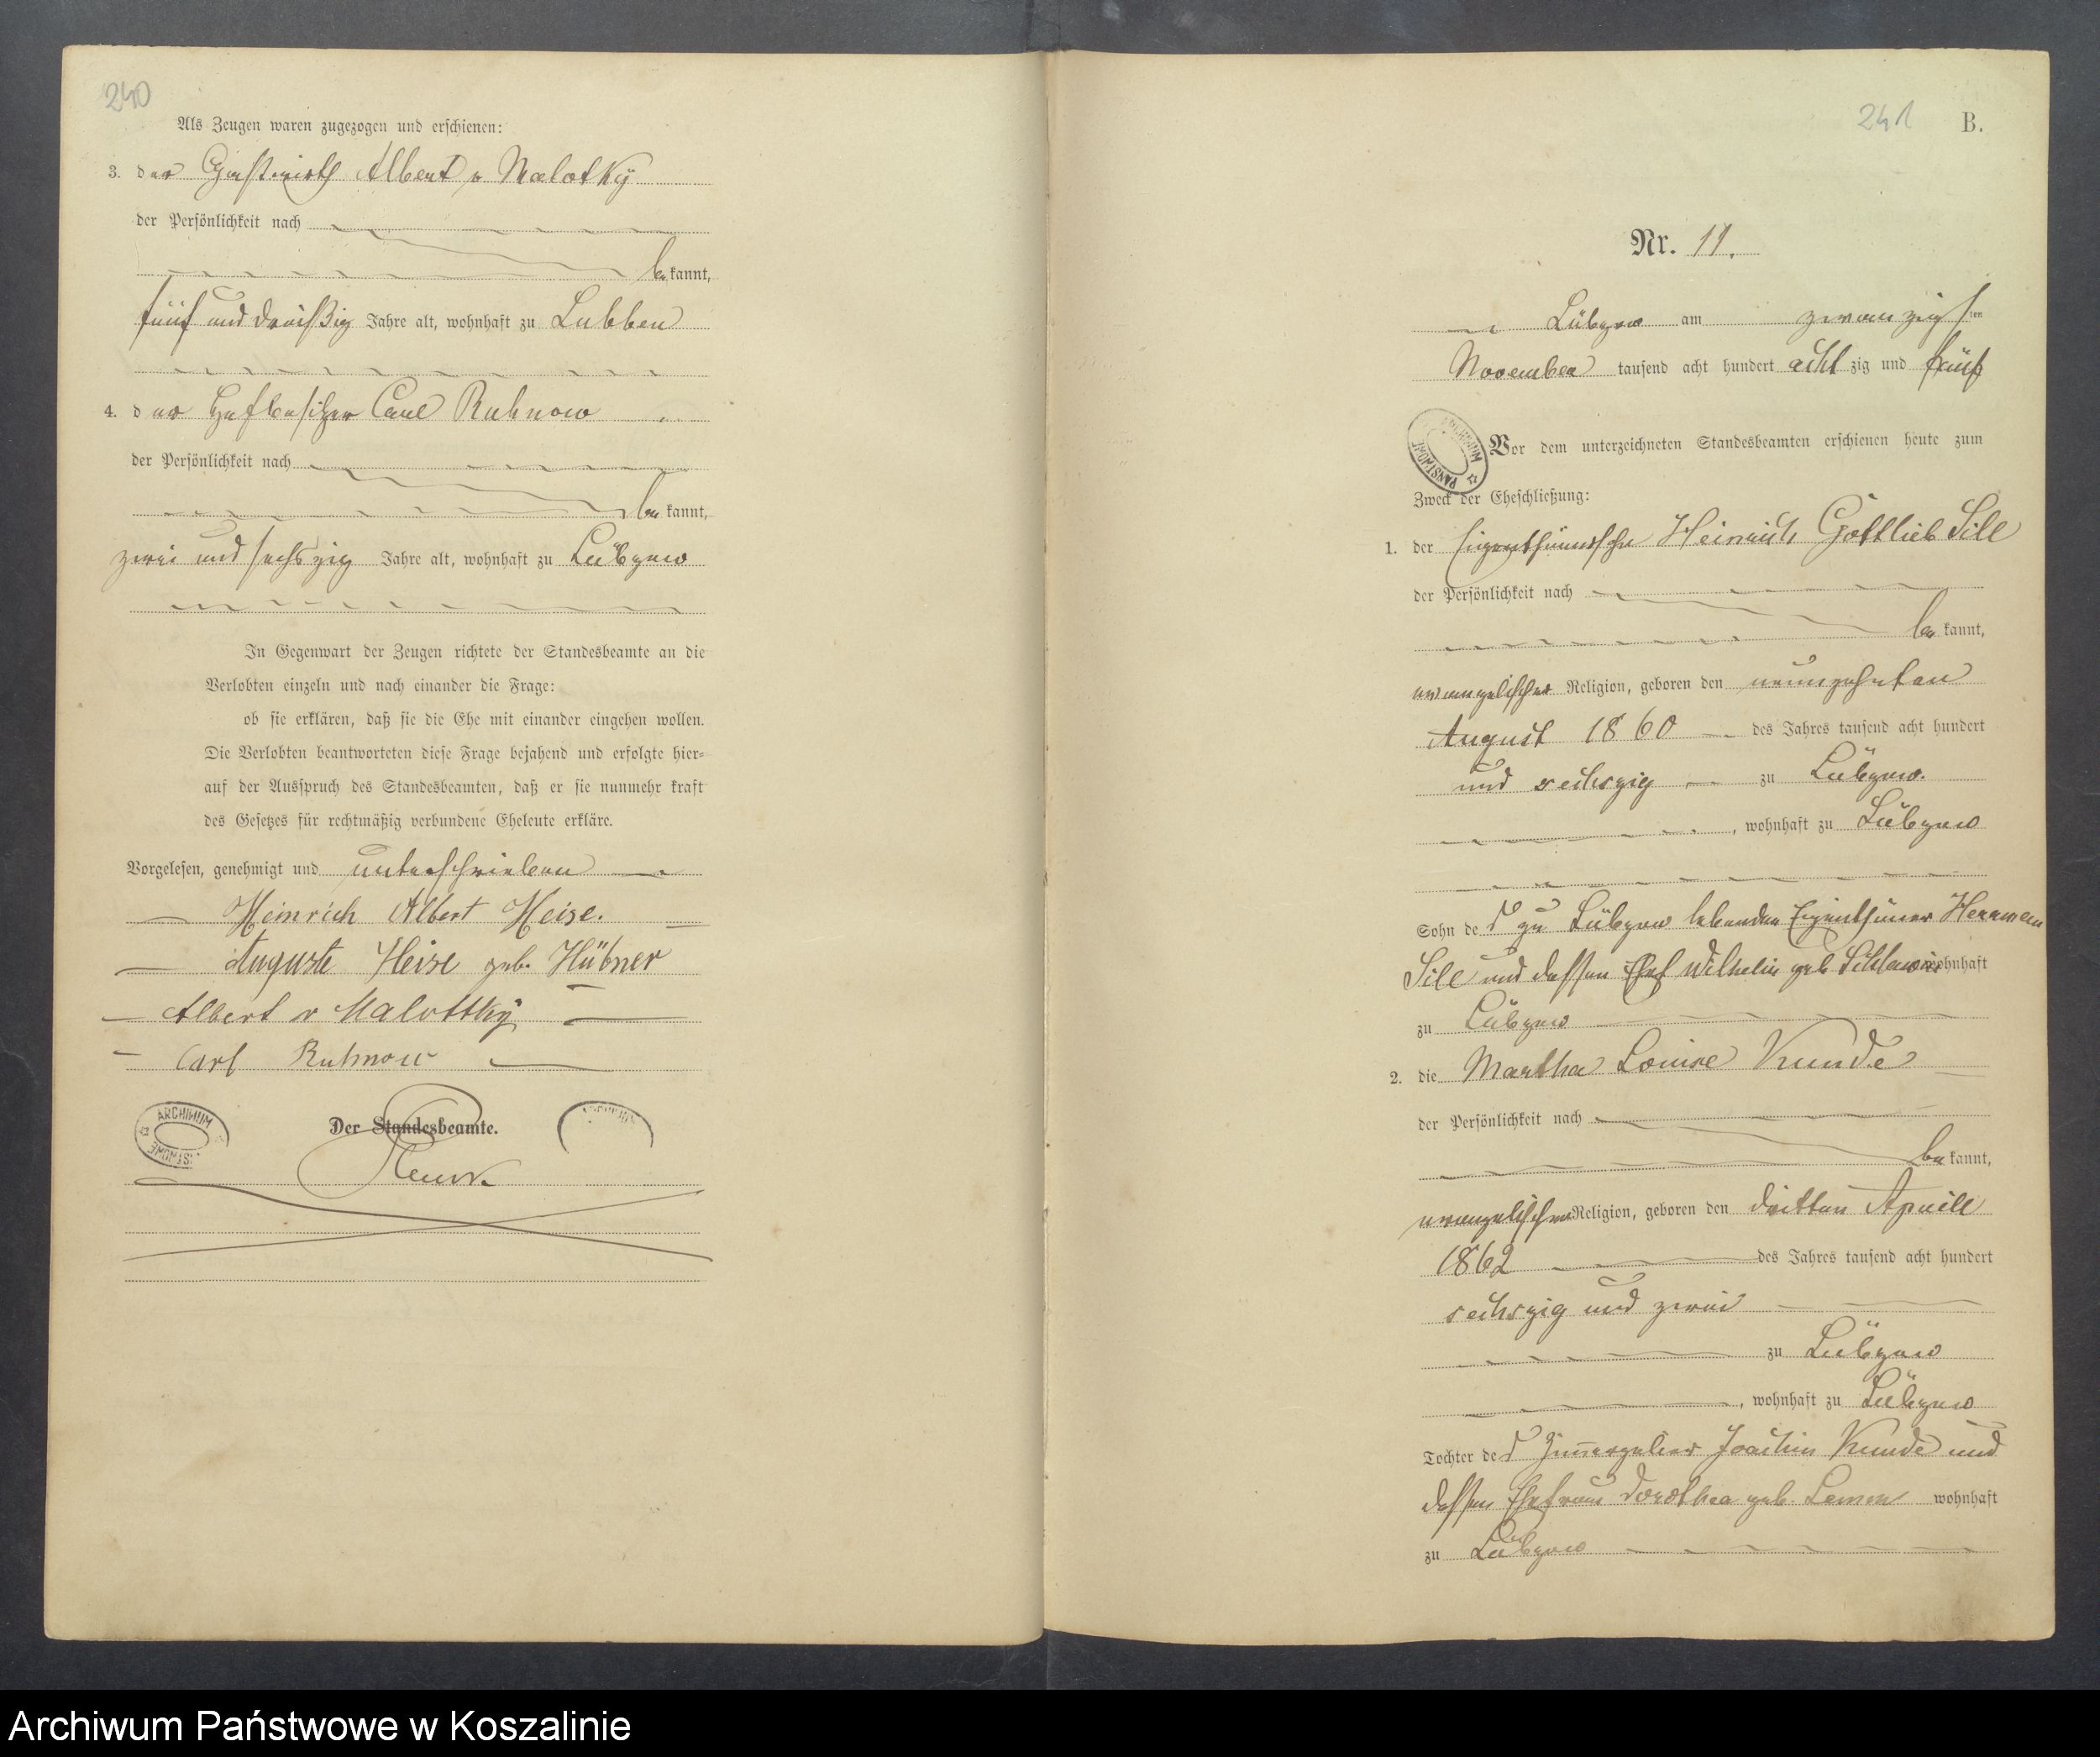 240
Als Zeugen waren zugezogen und erschienen:
3. der Gastwirth Albert v Malotky
der Persönlichkeit nach
be kannt,
fünf und dreißig Jahre alt, wohnhaft zu Lubben
4. der Hofbesitzer Carl Ruhnow
der Persönlichkeit nach
be kannt,
zwei und sechszig Jahre alt, wohnhaft zu Lübzow
In Gegenwart der Zeugen richtete der Standesbeamte an die
Verlobten einzeln und nach einander die Frage:
ob sie erklären, daß sie die Ehe mit einander eingehen wollen.
Die Verlobten beantworteten diese Frage bejahend und erfolgte hier-
auf der Ausspruch des Standesbeamten, daß er sie nunmehr kraft
des Gesetzes für rechtmäßig verbundene Eheleute erkläre.
Vorgelesen, genehmigt und unterschrieben
Heinrich Albert Heise.
Auguste Heise geb. Hübner
Albert v Malottky
Carl Ruhnow
Der Standesbeamte.
ARCHIWUM
241 B.
Nr. 11.
Lübzow am zwanzigsten
November tausend acht hundert acht zig und fünf
Vor dem unterzeichneten Standesbeamten erschienen heute zum
Zweck der Eheschließung:
1. der Eigenthümersohn Heinrich Gottlieb Sill
der Persönlichkeit nach
be kannt,
evangelischer Religion, geboren den neunzehnten
August 1860 des Jahres tausend acht hundert
und sechszig zu Lübzow.
, wohnhaft zu Lübzow
Sohn des zu Lübzow lebenden Eigenthümer Herrmann
Sill und dessen Ehef Wilhelm geb wohnhaft
zu Lübzow
2. die Martha Louise Kunde
der Persönlichkeit nach
be kannt,
evangelischer Religion, geboren den dritten Aprill
1862 des Jahres tausend acht hundert
sechszig und zwei
zu Lübzow
, wohnhaft zu Lübzow
Tochter des Joachim Kunde und
dessen Ehefrau Dorothea geb. wohnhaft
zu Lübzow
Archiwum Państwowe w Koszalinie